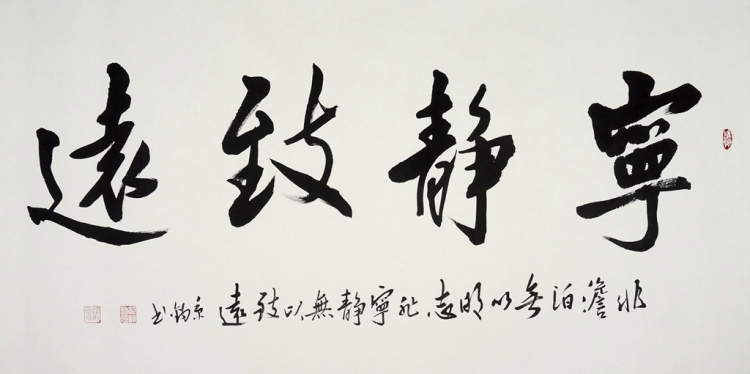 寧静致遠
非澹泊無以明志非寧静無以致遠